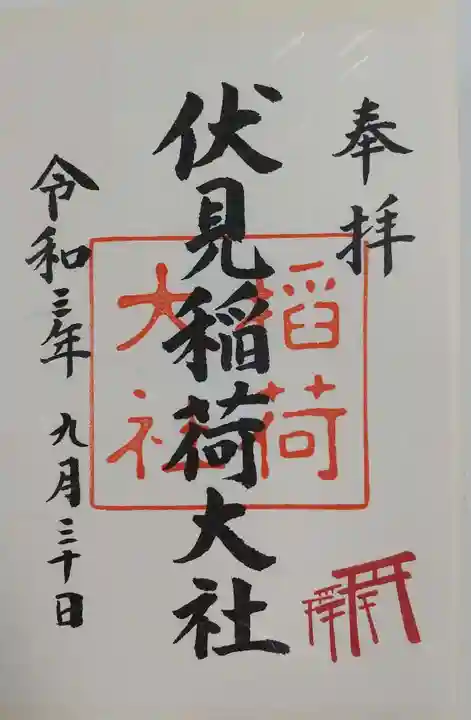 奉拝
伏見稲荷大社
稲荷
大社
令和三年 九月三十日